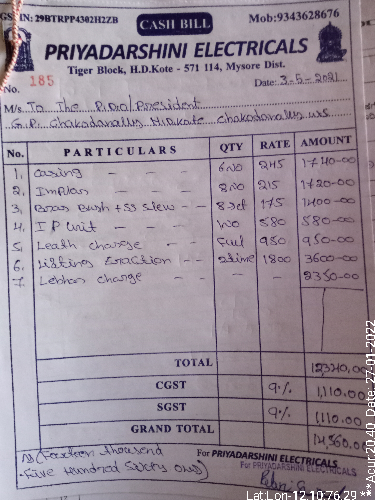 GSTIN: 29BTRPP4302H2ZB CASH BILL Mob:9343628676
PRIYADARSHINI ELECTRICALS
Tiger Block, H.D.Kote - 571 114, Mysore Dist.
No. 185 Date: 3-5-2021
M/s To The P.D.O/President
G.P. Chakodanally H.D.Kote Chakodanally
No. PARTICULARS QTY RATE AMOUNT
1, casing - - - 6 No 245 1740-00
2, - - - 8 No 215 1720-00
3, Bush + SS - - 8 set 175 1400-00
4, I P Unit - - 580 580-00
5, Leath charge - - Full 950 950-00
6. - - 2 time 1800 3600-00
7. charge - - - 2350-00
TOTAL 12340.00
CGST 9.% 1,110.00
SGST 9.% 1,110.00
GRAND TOTAL 14,560.00
Rs (Fourteen thousand For PRIYADARSHINI ELECTRICALS
Five Hundred Sixty only) For PRIYADARSHINI ELECTRICALS
Lat Lon-12.10,76.29 ***Acur 20.40 Date: 27-01-2022